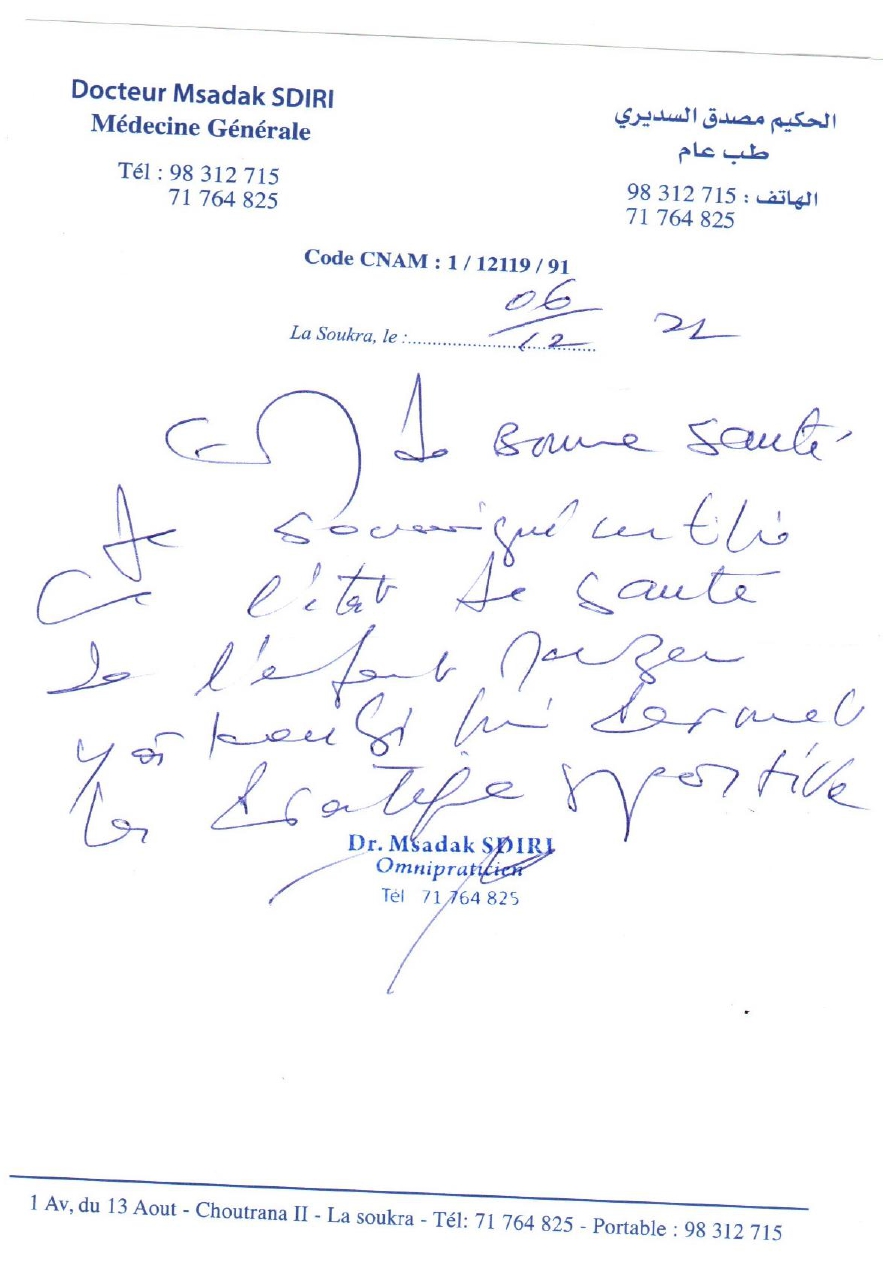 Docteur Msadak SDIRI
Médecine Générale
Tél : 98 312 715
71 764 825
الحكيم مصدق السديري
طب عام
الهاتف : 98 312 715
71 764 825
Code CNAM : 1 / 12119 / 91
La Soukra, le : 06/12 21
de Bonne Santé
Je soussigné certifie
l'état de santé
de l'enfant
lui permet
la pratique sportive
Dr. Msadak SDIRI
Omnipraticien
Tél 71 764 825
1 Av, du 13 Aout - Choutrana II - La soukra - Tél: 71 764 825 - Portable : 98 312 715